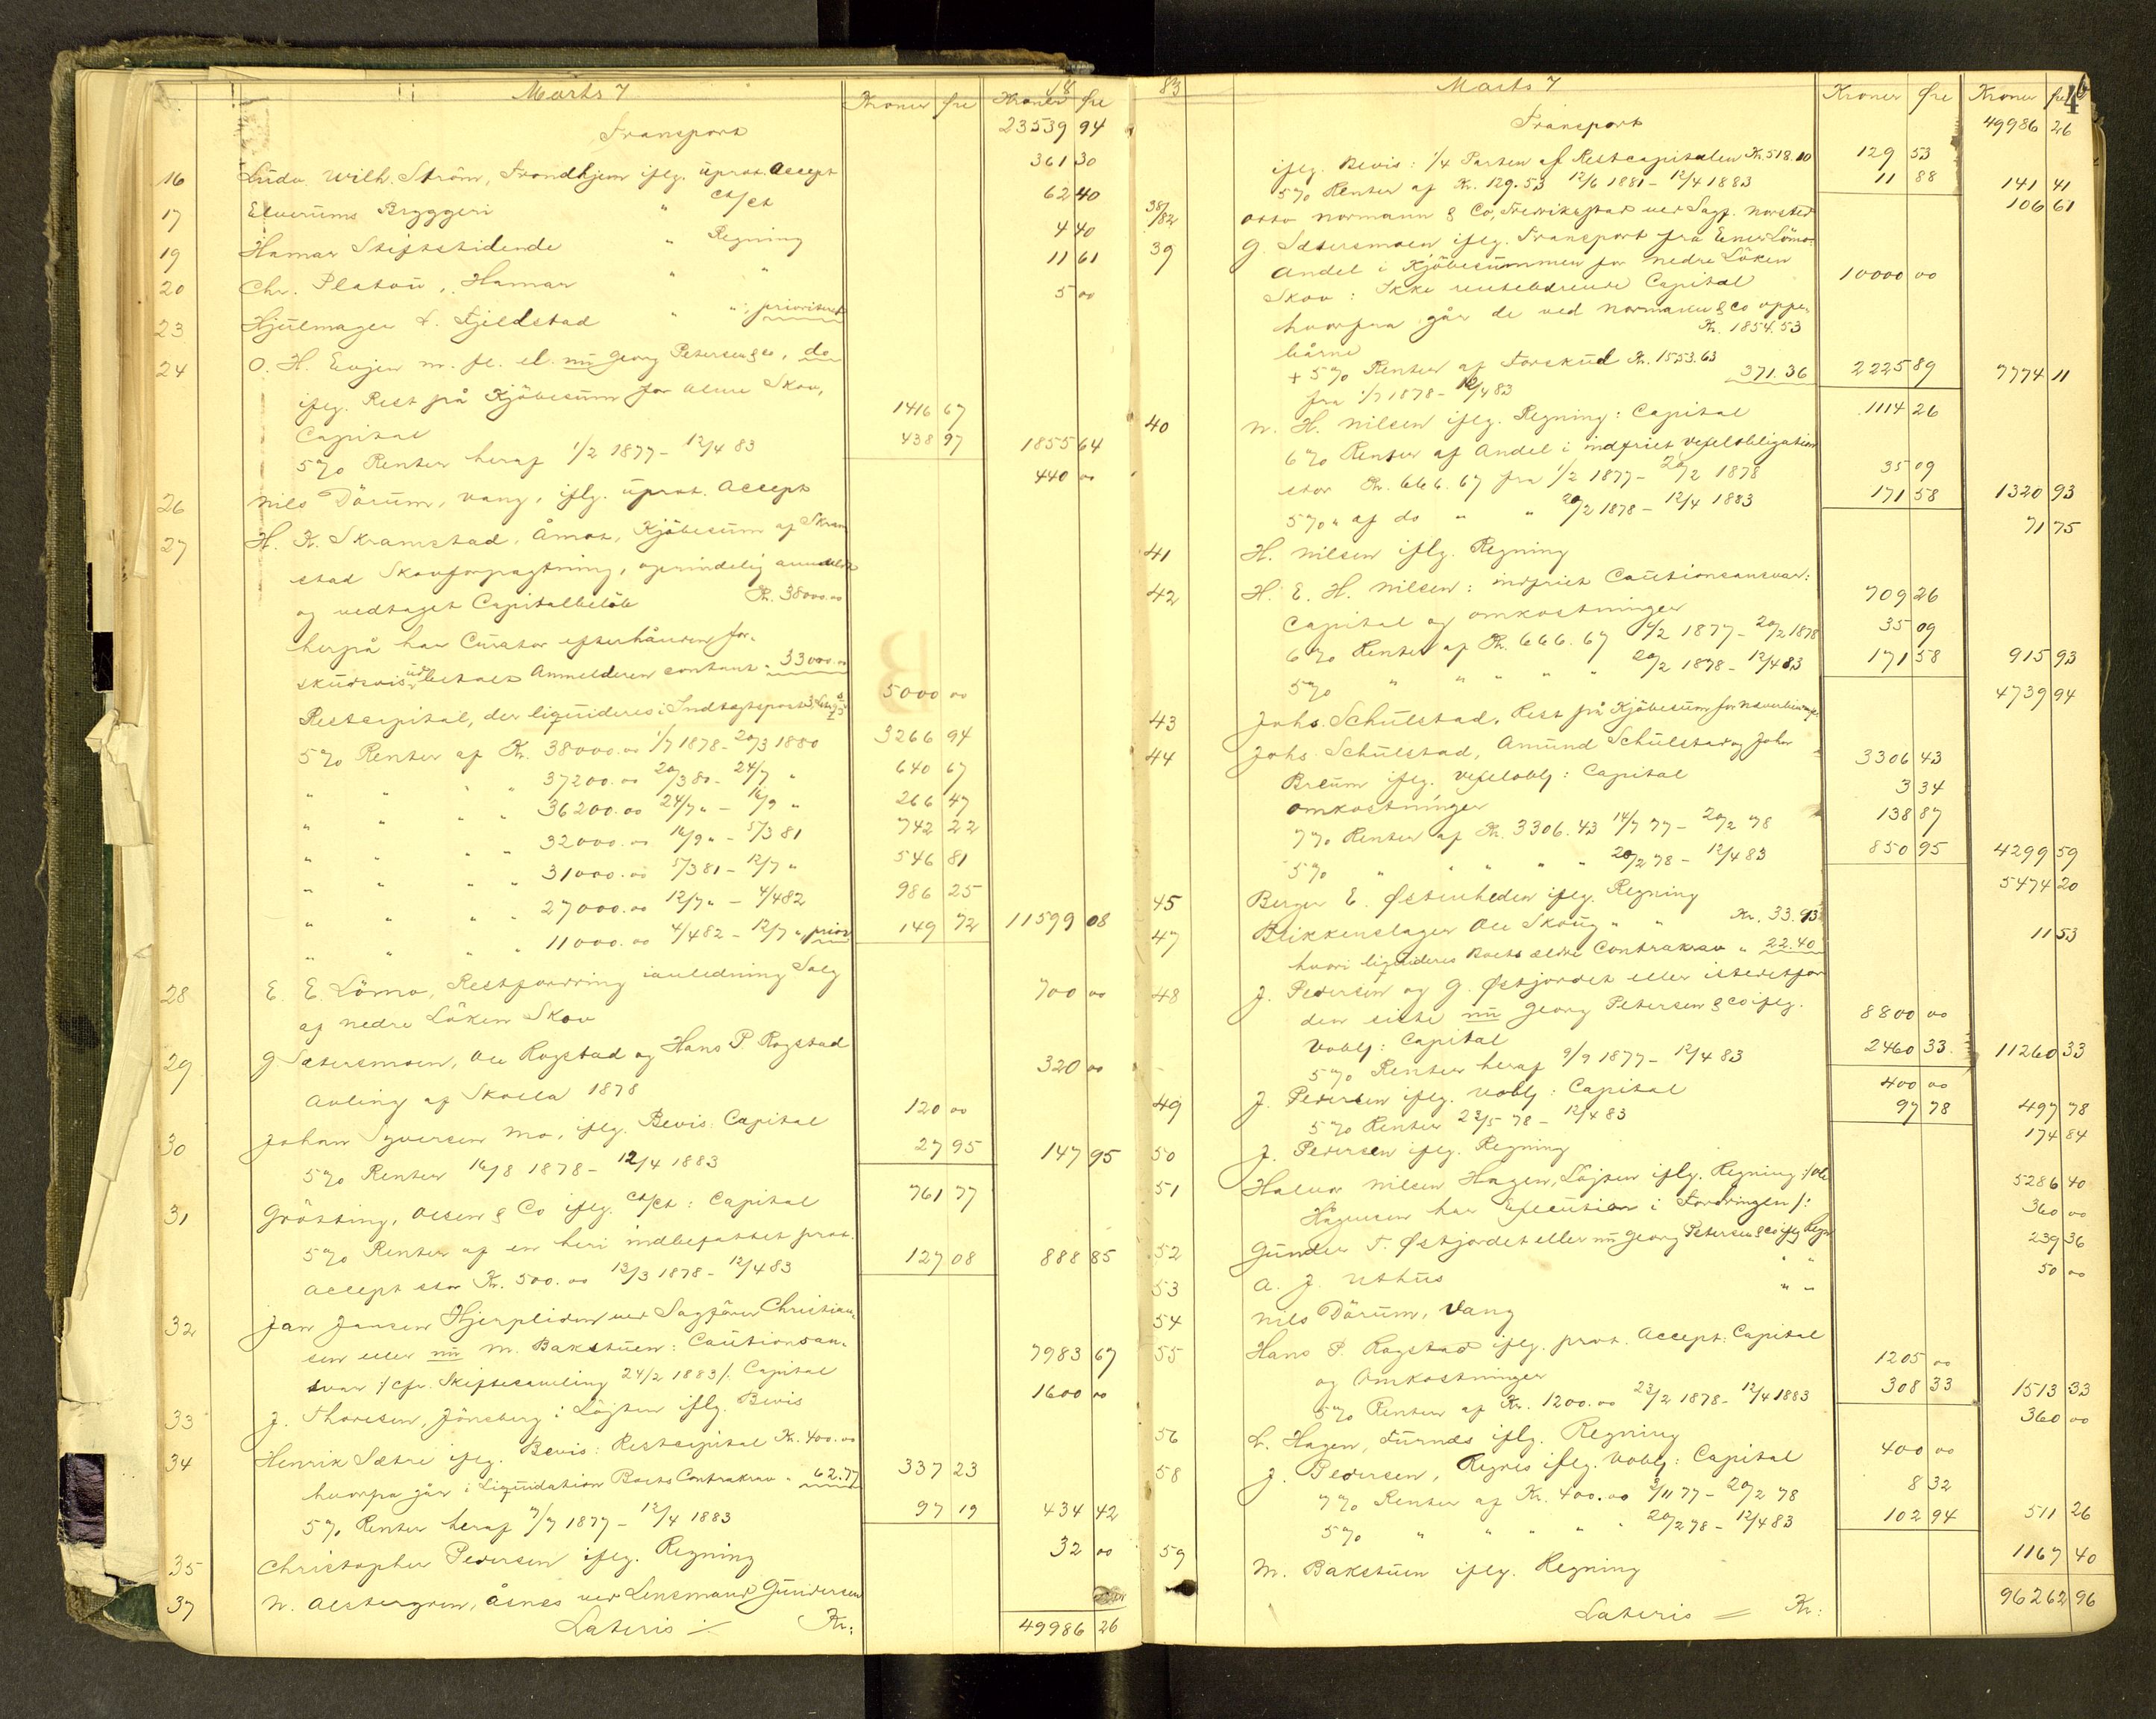 Marts 7
18
Kroner øre Kroner øre
Transport 23539 94
16 Ludv. Wilh. Ström, Trondhjem iflg. uprot. Accept 361 30
17 Elverums Bryggeri " Ct/Ct 62 40
19 Hamar Stiftstidende " Regning 4 40
20 Chr. Platou, Hamar " " 11 61
23 Hjulmager L. Fjeldstad " ", prioriteret 5 00
24 O. H. Evjen m. fl. el. nu Georg Petersen & Co, do
iflg. Rest på Kjöbesum for Skov,
Capital 1416 67
5% Renter heraf 1/2 1877 - 12/4 83 438 97 1855 64
26 Nils Dörum, Vang, iflg. uprot. Accept 440 00
27 H. K. Skramstad, Åmot, Kjöbesum af Skram
stad Skovforpagtning, oprindelig anmeldt
og vedtaget Capitalbelöb Kr. 38000.00
herpå har Curator efterhånden for-
skudsvis udbetalt Anmelderen contant " 33000.00
Restcapital, der liqvideres i Indtægtspost 5000 00
5% Renter af Kr. 38000.00 1/7 1878 - 20/3 1880 3266 94
" " " " 37200.00 20/3 80 - 24/7 " 640 67
" " " " 36200.00 24/7 " - 16/9 " 266 47
" " " " 32000.00 16/9 " - 5/3 81 742 22
" " " " 31000.00 5/3 81 - 12/7 " 546 81
" " " " 27000.00 12/7 " - 4/4 82 986 25
" " " " 11000.00 4/4 82 - 12/7 ", prior 149 72 11599 08
28 E. E. Lömo, Restfordring ianledning Salg
af nedre Löken Skov 700 00
29 G. Sætersmoen, Ole Rogstad og Hans P. Rogstad
Avling af Skolla 1878 320 00
30 Johan Syversen Mo, iflg. Bevis: Capital 120 00
5% Renter 16/8 1878 - 12/4 1883 27 95 147 95
31 Grötting, Olsen & Co iflg. Ct/Ct: Capital 761 77
5% Renter af en heri indbefattet prot.
Accept stor Kr. 500.00 12/3 1878 - 12/4 83 127 08 888 85
32 Jan Jansen Hjerpliden ved Sagförer Christian-
sen eller nu M. Bakstuen: Cautionsan-
svar /: cfr. Skiftesamling 24/2 1883 /: Capital 7983 67
33 J. Thoresen, Jönsberg i Löjten iflg. Bevis 1600 00
34 Henrik Sætre iflg. Bevis: Restcapital Kr. 400.00
hvorpå går i Liqvidation Boets Contrakrav " 62.77 337 23
5% Renter heraf 7/7 1877 - 12/4 1883 97 19 434 42
35 Christopher Pedersen iflg. Regning 32 00
37 N. Alstergren, Åsnes ved Lensmand Gundersen
Lateris Kr: 49986 26
83
Marts 7
Kroner øre Kroner øre
Transport 49986 26
iflg. Bevis: 1/4 Parten af Restcapitalen Kr. 518.10 129 53
5% Renter af Kr. 129.53 12/6 1881 - 12/4 1883 11 88 141 41
38/82 Otto Normann & Co, Fredrikstad ved Sagf. Norsted 106 61
39 G. Sætersmoen iflg. Transport fra Einer Lömo:
Andel i Kjöbesummen for nedre Löken
Skov: Ikke rentebærende Capital 10000 00
hvorfra går de ved Normann & Co oppe-
bårne Kr. 1854.53
+ 5% Renter af Forskud Kr. 1553.63
fra 1/7 1878 - 12/4 83 371.36 2225 89 7774 11
40 N. H. Nilsen iflg. Regning: Capital 1114 26
6% Renter af Andel i indfriet Vexelobligation
stor Kr. 666.67 fra 1/2 1877 - 20/2 1878 35 09
5% " af do " " 20/2 1878 - 12/4 1883 171 58 1320 93
41 H. Nilsen iflg. Regning 71 75
42 H. E. H. Nilsen: indfriet Cautionsansvar:
Capital og Omkostninger 709 26
6% Renter af Kr. 666.67 1/2 1877 - 20/2 1878 35 09
5% " " " " " 20/2 1878 - 12/4 83 171 58 915 93
43 Johs. Schulstad, Rest på Kjöbesum for 4739 94
44 Johs. Schulstad, Amund Schulstad og Johs
Breum iflg. Vexelobl: Capital 3306 43
Omkostninger 3 34
7% Renter af Kr. 3306.43 14/7 77 - 20/2 78 138 87
5% " " " " " 20/2 78 - 12/4 83 850 95 4299 59
45 Berger E. Østenheden iflg. Regning 5474 20
47 Blikkenslager Ole Skoug " " Kr. 33.93
hvori liqvideres Boets ældre Contrakrav " 22.40 11 53
48 J. Pedersen og G. Østjordet eller istedetfor
den siste nu Georg Petersen & Co iflg.
Vobl: Capital 8800 00
5% Renter heraf 9/9 1877 - 12/4 83 2460 33 11260 33
49 J. Pedersen iflg. Vobl: Capital 400 00
5% Renter 23/5 78 - 12/4 83 97 78 497 78
50 J. Pedersen iflg. Regning 174 84
51 Halvor Nilsen Hagen, Löjten iflg. Regning /: Ole
Hagensen har Execution i Fordringen /: 5286 40
52 Gunder T. Østjordet eller nu Georg Petersen & Co iflg Regn 360 00
53 A. J. Uthus " " 239 36
54 Nils Dörum, Vang " " 50 00
55 Hans P. Rogstad iflg. prot. Accept: Capital
og Omkostninger 1205 00
5% Renter af Kr. 1200.00 23/2 1878 - 12/4 1883 308 33 1513 33
56 L. Hagen, Furnes iflg. Regning 360 00
58 J. Pedersen, Regnes iflg. Vobl: Capital 400 00
7% Renter af Kr. 400.00 3/11 77 - 20/2 78 8 32
5% " " " " " 20/2 78 - 12/4 83 102 94 511 26
59 M. Bakstuen iflg. Regning 1167 40
Lateris Kr: 96262 96